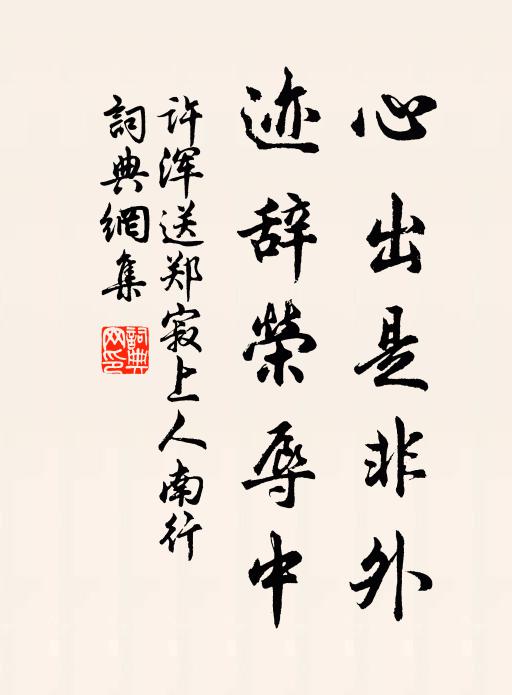 心出是非外
迹辞榮辱中
许浑送郑寂上人南行
詞典網集
詞典网印